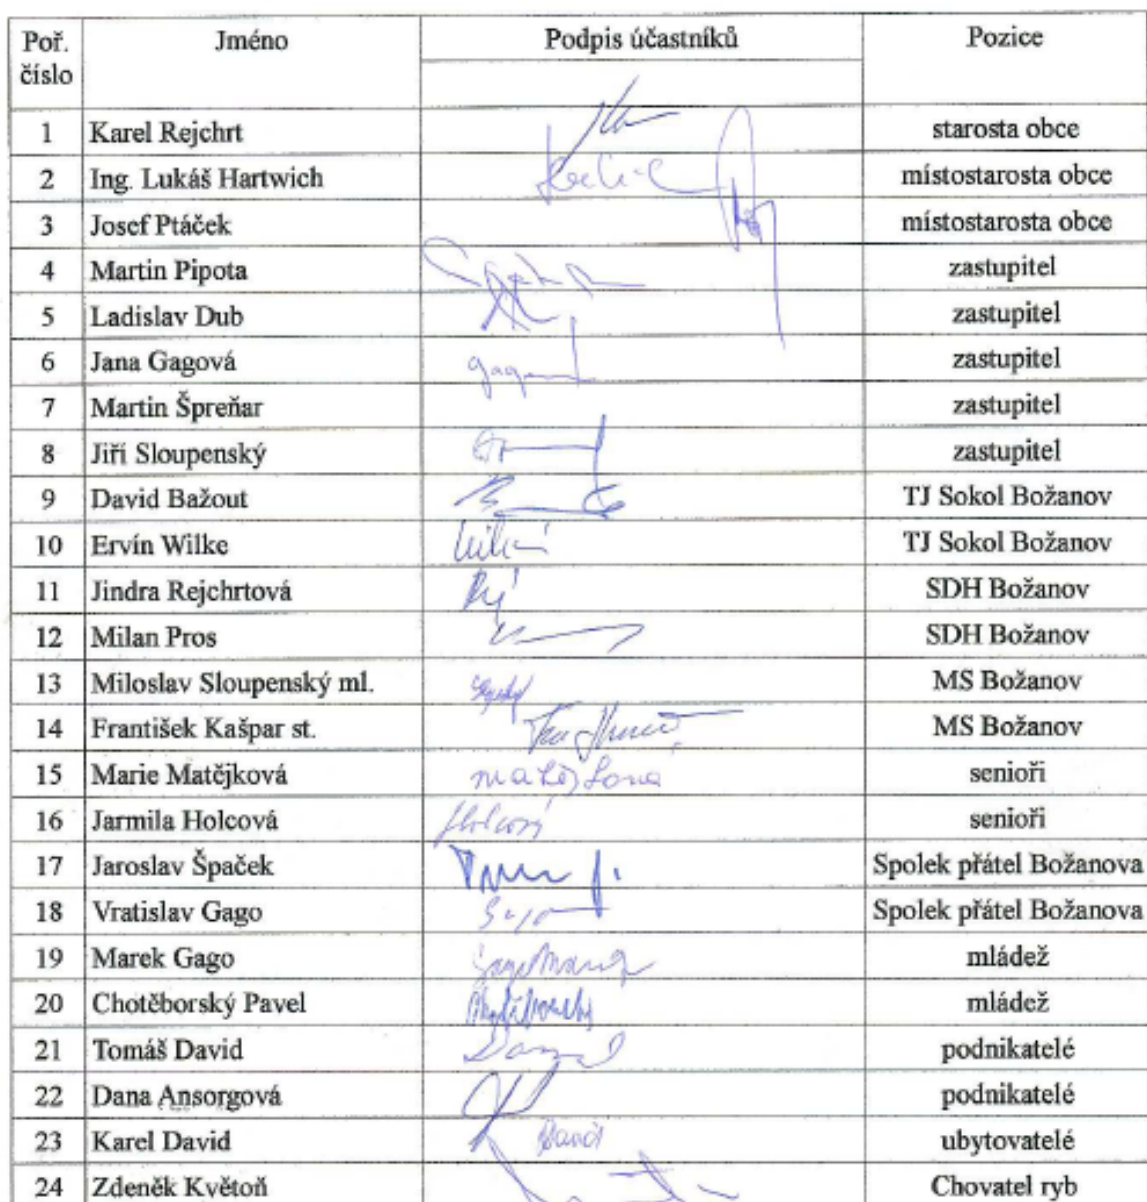 Poř. číslo Jméno Podpis účastníků Pozice
1 Karel Rejchrt starosta obce
2 Ing. Lukáš Hartwich místostarosta obce
3 Josef Ptáček místostarosta obce
4 Martin Pipota zastupitel
5 Ladislav Dub zastupitel
6 Jana Gagová zastupitel
7 Martin Špreňar zastupitel
8 Jiří Sloupenský zastupitel
9 David Bažout TJ Sokol Božanov
10 Ervín Wilke TJ Sokol Božanov
11 Jindra Rejchrtová SDH Božanov
12 Milan Pros SDH Božanov
13 Miloslav Sloupenský ml. MS Božanov
14 František Kašpar st. MS Božanov
15 Marie Matějková senioři
16 Jarmila Holcová senioři
17 Jaroslav Špaček Spolek přátel Božanova
18 Vratislav Gago Spolek přátel Božanova
19 Marek Gago mládež
20 Chotěborský Pavel mládež
21 Tomáš David podnikatelé
22 Dana Ansorgová podnikatelé
23 Karel David David ubytovatelé
24 Zdeněk Květoň Chovatel ryb